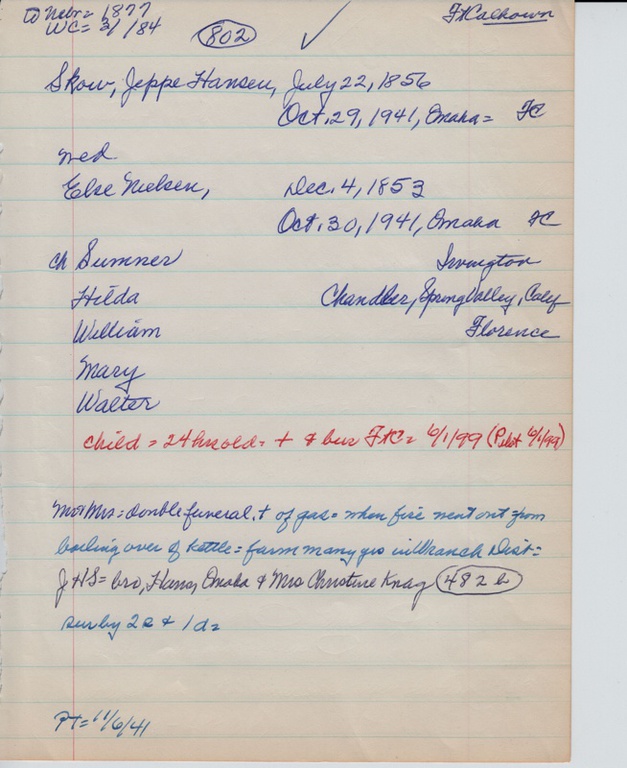 to Nebr = 1877
WC = 3/1/84
802 ✓
Ft Calhoun
Skow, Jeppe Hansen, July 22, 1856
Oct. 29, 1941, Omaha = FC
med
Else Nielsen, Dec. 4, 1853
Oct. 30, 1941, Omaha FC
ch Sumner Irvington
Hilda Chandler, Spring Valley, Calif
William Florence
Mary
Walter
child = 24 hrs old = + & bur Ft C = 6/1/99 (Pilot 6/1/99)
Mr & Mrs = double funeral, + of gas = when fire went out from
boiling over of kettle = farm many yrs in Branch Dist =
JHS = bro, Hans, Omaha & Mrs Christine Knag 482 b
sur by 2 s & 1 d =
PT = 11/6/41